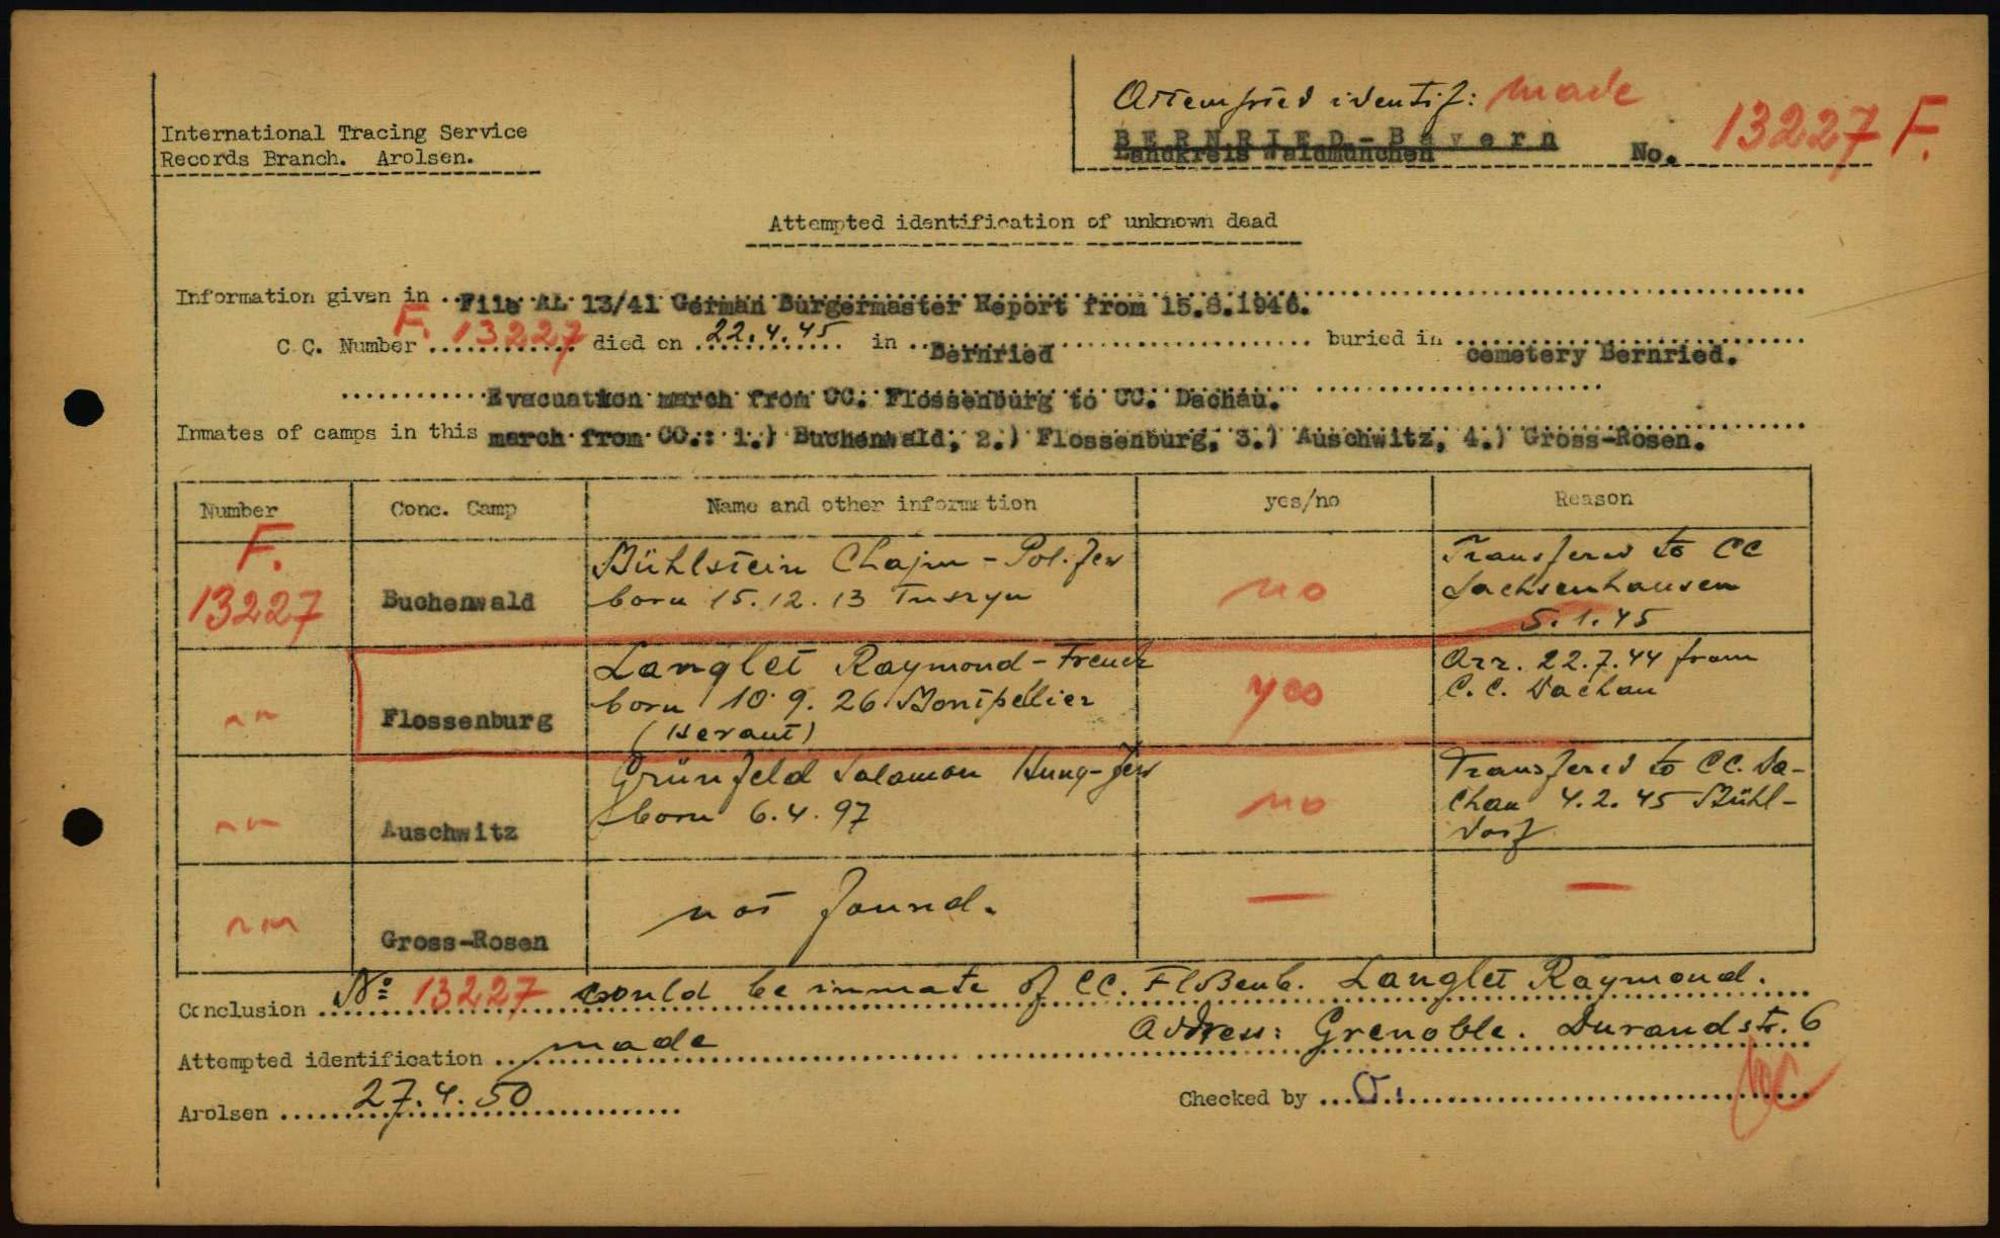 Attempted identif: made
International Tracing Service
Records Branch. Arolsen.
BERNRIED-Bayern
Landkreis Waldmünchen
No. 13227 F.
Attempted identification of unknown dead
Information given in File AL 13/41 German Burgermaster Report from 15.8.1946.
C.C. Number F. 13227 died on 22.4.45 in Bernried buried in cemetery Bernried.
Evacuation march from CC. Flossenburg to CC. Dachau.
Inmates of camps in this march from CC.: 1.) Buchenwald, 2.) Flossenburg, 3.) Auschwitz, 4.) Gross-Rosen.
Number Conc. Camp Name and other information yes/no Reason
F.
13227 Buchenwald
Mühlstein Chajm - Pol. Jew
born 15.12.13 Tuszyn
no
Transfered to CC
Sachsenhausen
5.1.45
-"- Flossenburg
Langlet Raymond - French
born 10.9.26 Montpellier
(Heraut)
yes
Arr. 22.7.44 from
C.C. Dachau
-"- Auschwitz
Grünfeld Salamon Hung-Jew
born 6.4.97
no
Transfered to CC. Da-
chau 4.2.45 Mühl-
dorf
-"- Gross-Rosen
not found.
— —
Conclusion No 13227 could be inmate of CC. Floßenb. Langlet Raymond.
Address: Grenoble. Durandstr. 6
Attempted identification made
Arolsen 27.4.50
Checked by